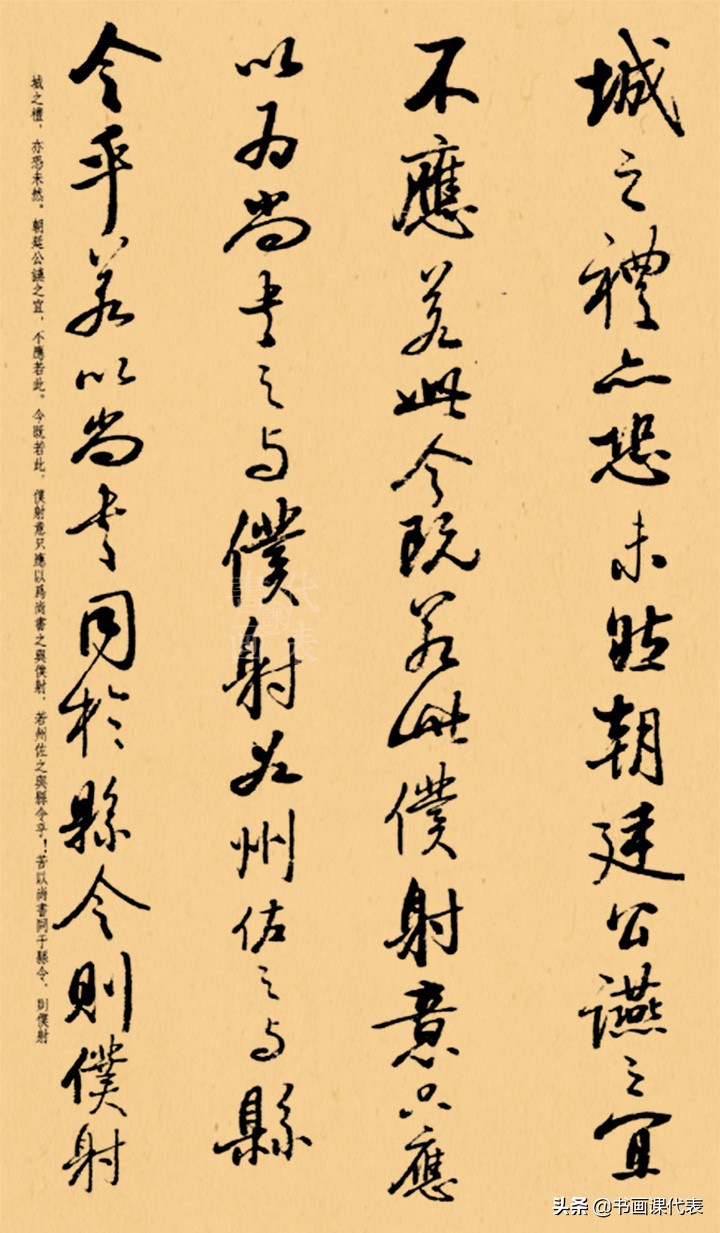 城之禮亦恐未然朝廷公讌之宜
不應若此今既若此僕射意只應
以為尚書之与僕射若州佐之与縣
令乎若以尚書同於縣令則僕射
城之禮，亦恐未然。朝廷公讌之宜，不應若此。今既若此，僕射意只應以爲尚書之與僕射，若州佐之與縣令乎！若以尚書同于縣令，則僕射
头条 @书画课代表